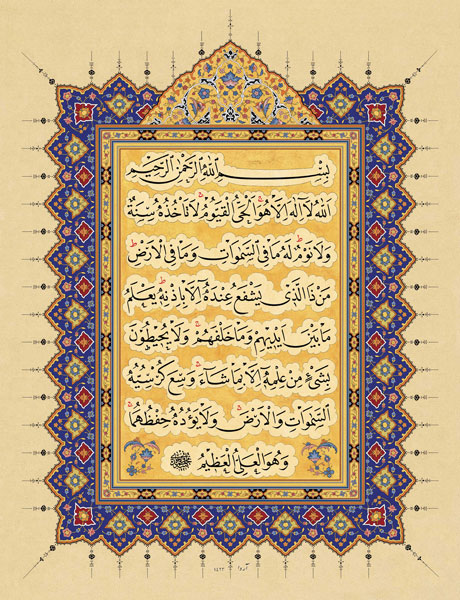 بِسْمِ اللهِ الرَّحْمٰنِ الرَّحِيمِ
اَللهُ لَا اِلٰهَ اِلَّا هُوَ الْحَيُّ الْقَيُّومُ لَا تَأْخُذُهُ سِنَةٌ
وَلَا نَوْمٌ لَهُ مَا فِي السَّمٰوَاتِ وَمَا فِي الْاَرْضِ
مَنْ ذَا الَّذِي يَشْفَعُ عِنْدَهُ اِلَّا بِاِذْنِهِ يَعْلَمُ
مَا بَيْنَ اَيْدِيهِمْ وَمَا خَلْفَهُمْ وَلَا يُحِيطُونَ
بِشَيْءٍ مِنْ عِلْمِهِ اِلَّا بِمَا شَاءَ وَسِعَ كُرْسِيُّهُ
السَّمٰوَاتِ وَالْاَرْضَ وَلَا يَؤُدُهُ حِفْظُهُمَا
وَهُوَ الْعَلِيُّ الْعَظِيمُ